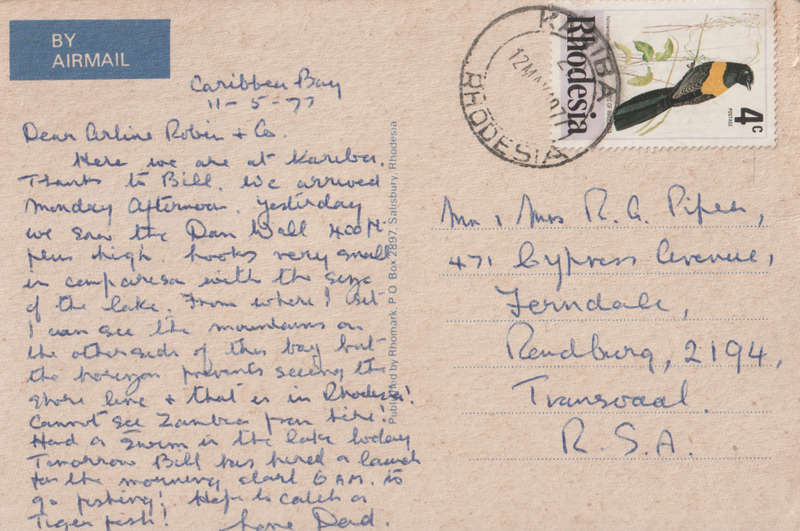 BY
AIRMAIL
Caribbea Bay
11-5-77
Dear Arline Robin & Co.
Here we are at Kariba.
Thanks to Bill. We arrived
Monday Afternoon. Yesterday
we saw the Dam Wall 400 ft
plus high. Looks very small
in comparison with the size
of the lake. From where I sit
I can see the mountains on
the other side of this bay but
the horizon prevents seeing the
shore line & that is in Rhodesia!
Cannot see Zambia from here!
Had a swim in the lake today
Tomorrow Bill has hired a launch
for the morning, start 6 AM. to
go fishing! Hope to catch a
Tiger fish! Love Dad.
Published by Rhomark, P.O. Box 2897, Salisbury, Rhodesia
KARIBA
12 MAY 1977
RHODESIA
Rhodesia
4c
POSTAGE
Mr & Mrs R. G. Piper,
471 Cypress Avenue,
Ferndale,
Randburg, 2194,
Transvaal.
R.S.A.